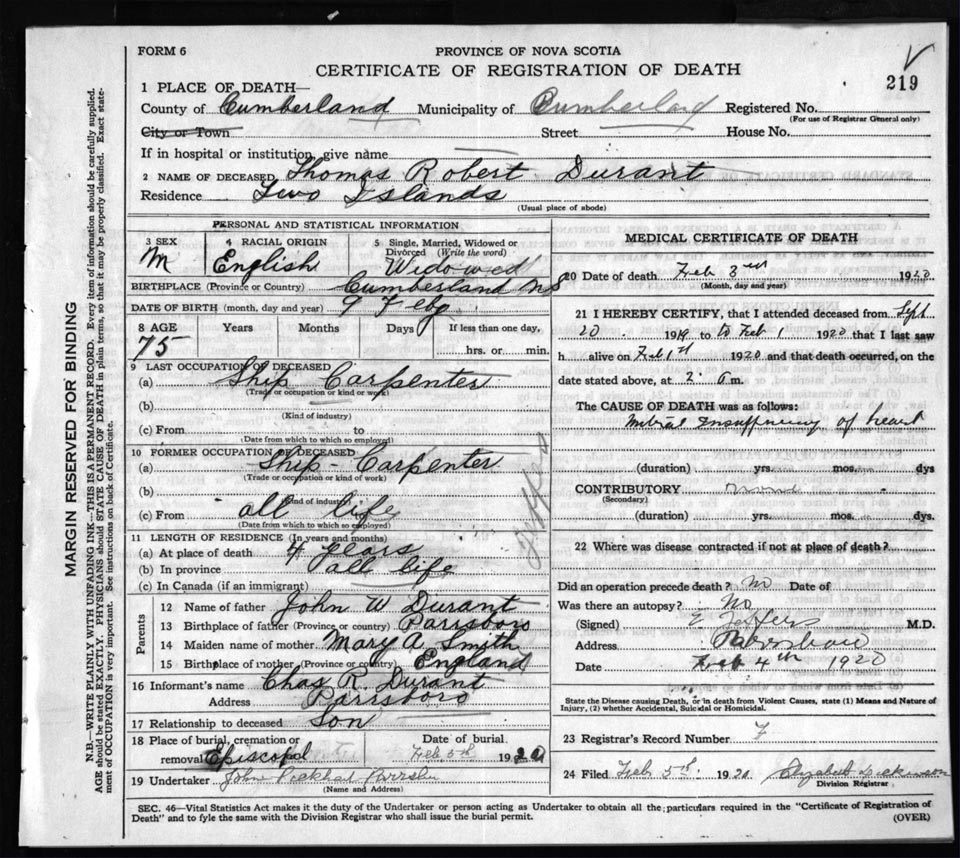 FORM 6
PROVINCE OF NOVA SCOTIA
CERTIFICATE OF REGISTRATION OF DEATH
219
1 PLACE OF DEATH—
County of Cumberland Municipality of Cumberland Registered No.
(For use of Registrar General only)
City or Town Street House No.
If in hospital or institution, give name
2 NAME OF DECEASED Thomas Robert Durant
Residence Two Islands
(Usual place of abode)
PERSONAL AND STATISTICAL INFORMATION
3 SEX
M
4 RACIAL ORIGIN
English
5 Single, Married, Widowed or Divorced (Write the word)
Widowed
BIRTHPLACE (Province or Country) Cumberland NS
DATE OF BIRTH (month, day and year) 9 Feby
8 AGE Years Months Days If less than one day,
75 hrs. or min.
9 LAST OCCUPATION OF DECEASED
(a) Ship Carpenter
(Trade or occupation or kind or work)
(b)
(Kind of industry)
(c) From to
(Date from which to which so employed)
10 FORMER OCCUPATION OF DECEASED
(a) Ship-Carpenter
(Trade or occupation or kind of work)
(b)
(Kind of industry)
(c) From all life
(Date from which to which so employed)
11 LENGTH OF RESIDENCE (In years and months)
(a) At place of death 4 years
(b) In province all life
(c) In Canada (if an immigrant)
Parents
12 Name of father John W Durant
13 Birthplace of father (Province or country) Parrsboro
14 Maiden name of mother Mary A. Smith
15 Birthplace of mother (Province or country) England
16 Informant's name Chas R. Durant
Address Parrsboro
17 Relationship to deceased Son
18 Place of burial, cremation or removal Episcopal
Date of burial. Feb 5th 1920
19 Undertaker John
(Name and Address)
MEDICAL CERTIFICATE OF DEATH
20 Date of death Feb 3rd 1920
(Month, day and year)
21 I HEREBY CERTIFY, that I attended deceased from Sept
20 1919 to Feb 1 1920 that I last saw
h alive on Feb 1st 1920 and that death occurred, on the
date stated above, at 2 a m.
The CAUSE OF DEATH was as follows:
Mitral Insufficiency of heart
(duration) yrs. mos. dys
CONTRIBUTORY
(Secondary)
(duration) yrs. mos. dys.
22 Where was disease contracted if not at place of death?
Did an operation precede death? No Date of
Was there an autopsy? No
(Signed) E Jeffers M.D.
Address
Date Feb 4th 1920
State the Disease causing Death, or in death from Violent Causes, state (1) Means and Nature of
Injury, (2) whether Accidental, Suicidal or Homicidal.
23 Registrar's Record Number 7
24 Filed Feb 5th 1920 Elizabeth
Division Registrar
SEC. 46—Vital Statistics Act makes it the duty of the Undertaker or person acting as Undertaker to obtain all the particulars required in the "Certificate of Registration of
Death" and to fyle the same with the Division Registrar who shall issue the burial permit. (OVER)
MARGIN RESERVED FOR BINDING
N.B.—WRITE PLAINLY WITH UNFADING INK—THIS IS A PERMANENT RECORD. Every item of information should be carefully supplied.
AGE should be stated EXACTLY. PHYSICIANS should STATE CAUSE OF DEATH in plain terms, so that it may be properly classified. Exact state-
ment of OCCUPATION is very important. See instructions on back of Certificate.